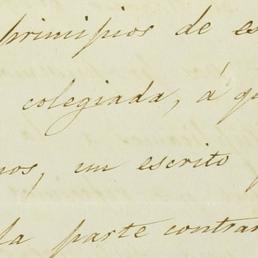 principios de es
colegiada, á qu
nos, un escrito
la parte contrar